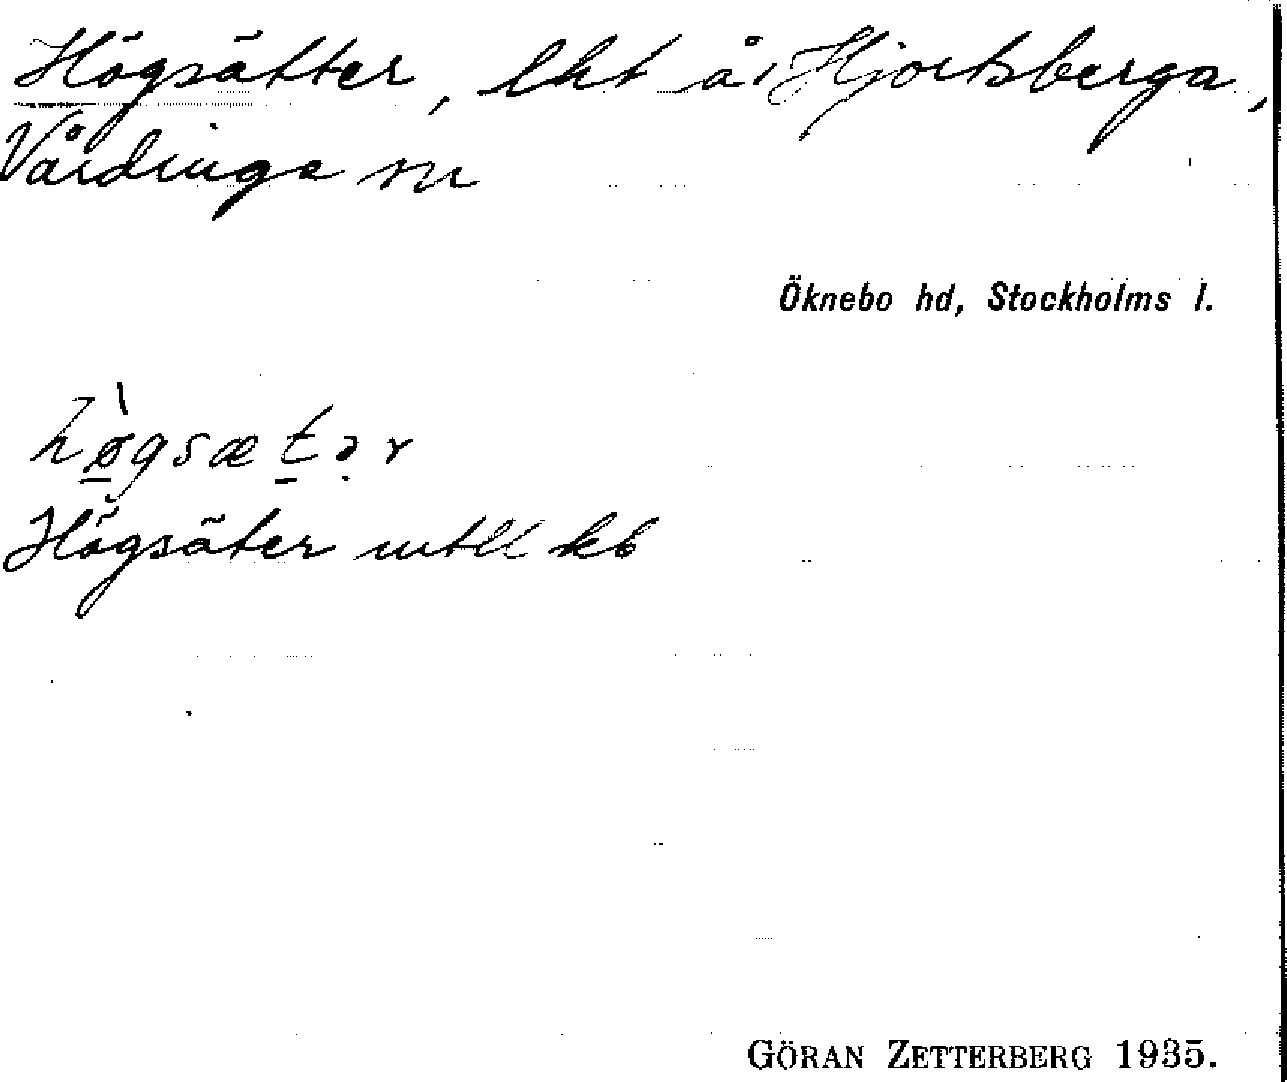 Högsätter, lht å Hjortsberga,
Vårdinga sn
Öknebo hd, Stockholms l.
hø̀gsætər
Högsäter mtll kb
GÖRAN ZETTERBERG 1935.